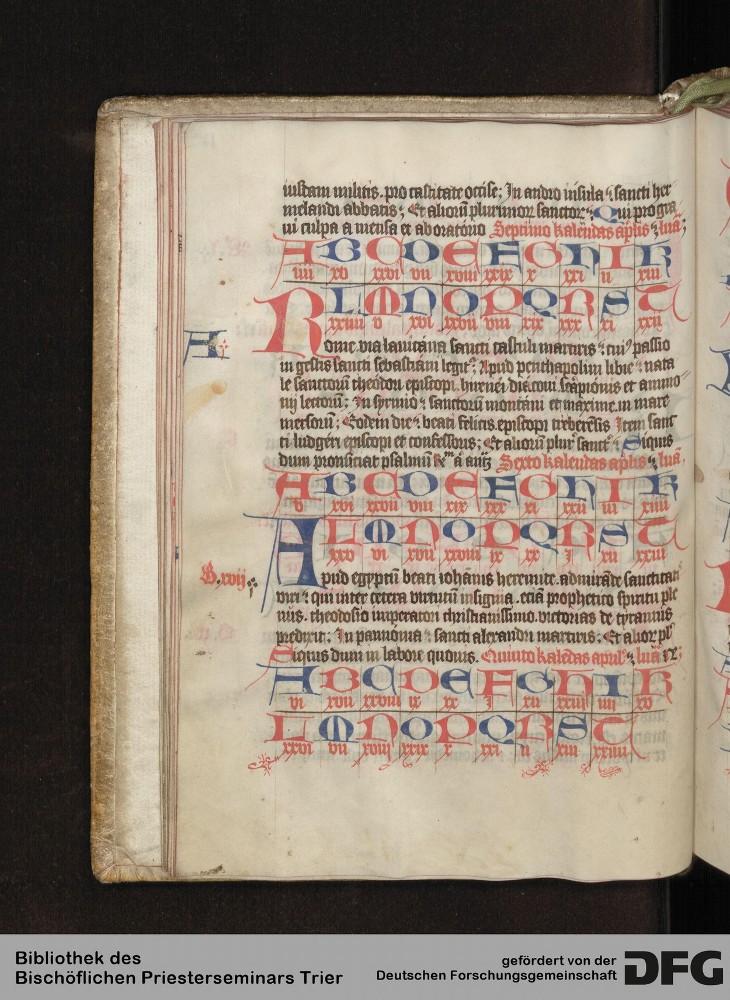 iusdam militis. pro castitate occise; In andro insula ⁊ sancti her
melandi abbatis; Et aliorū plurimor̄ sanctor̄; Qui pro gra
ui culpa a mensa et ab oratorio Septimo kalendas ap̄lis ⁊ lua;
A B C D E F G H I K
iiii xv xxvi vii xviii xxix x xxi ii xiii
L M N O P Q R S T
xxiiii v xvi xxvii viii xix xxx xi xxii
A
Rome. via lauicana sancti castuli martiris ⁊ cui⁹ passio
in gestis sancti sebastiani legit᷒; Apud penthapolim libie ⁊ nata
le sanctorū theodori episcopi. hirenei diaconi. scapionis et ammo
nij lectorū; In syrmio ⁊ sanctorū montani et maxime. in mare
mersorū; Eodem die ⁊ beati felicis. episcopi treberēsis Item sanc
ti ludgeri episcopi et confessoris; Et aliorū plur̄ sanct᷒ ⁊ Siquis
dum pronūciat psalmū Sexto kalendas ap̄lis ⁊ luā.
A B C D E F G H I K
v xvi xxvii viii xix xxii iii xiiii
L M N O P Q R S T
xxv vi xvii xxviii ix xx I xii xxiii
B. xvij
Apud egyptū beati iohānis heremite. admirāde sanctitatis
viri ⁊ qui inter cetera virtutū insignia. etiā prophetico spiritu ple
nus. theodosio imperatori christianissimo. victorias de tyrannis
predixit; In pannonia ⁊ sancti alexandri martiris; Et alior̄ pl᷒
Siquis dum in labore quouis. Quinto kalēdas april᷒ ⁊ luā
A B C D E F G H I K
vi xvii xxviii ix xx I xii xxiiii iiii xv
L M N O P Q R S T
xxvi vii xviij xxix x xxi ii xiii xxiiii
Bibliothek des
Bischöflichen Priesterseminars Trier
gefördert von der
Deutschen Forschungsgemeinschaft
DFG